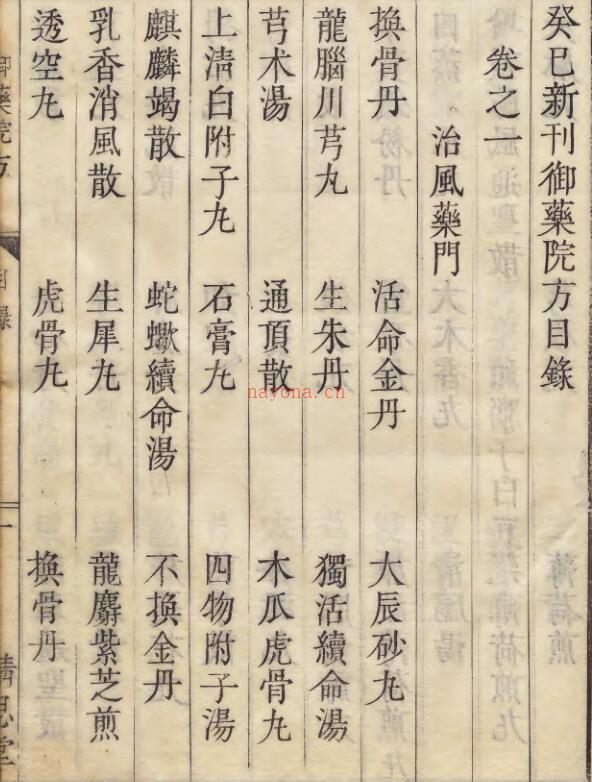 癸巳新刊御藥院方目錄
卷之一
治風藥門
換骨丹 活命金丹 大辰砂丸
龍腦川芎丸 生朱丹 獨活續命湯
芎术湯 通頂散 木瓜虎骨丸
上淸白附子丸 石膏丸 四物附子湯
麒麟竭散 蛇蠍續命湯 不換金丹
乳香消風散 生犀丸 龍麝紫芝煎
透空丸 虎骨丸 換骨丹
nayona.cn